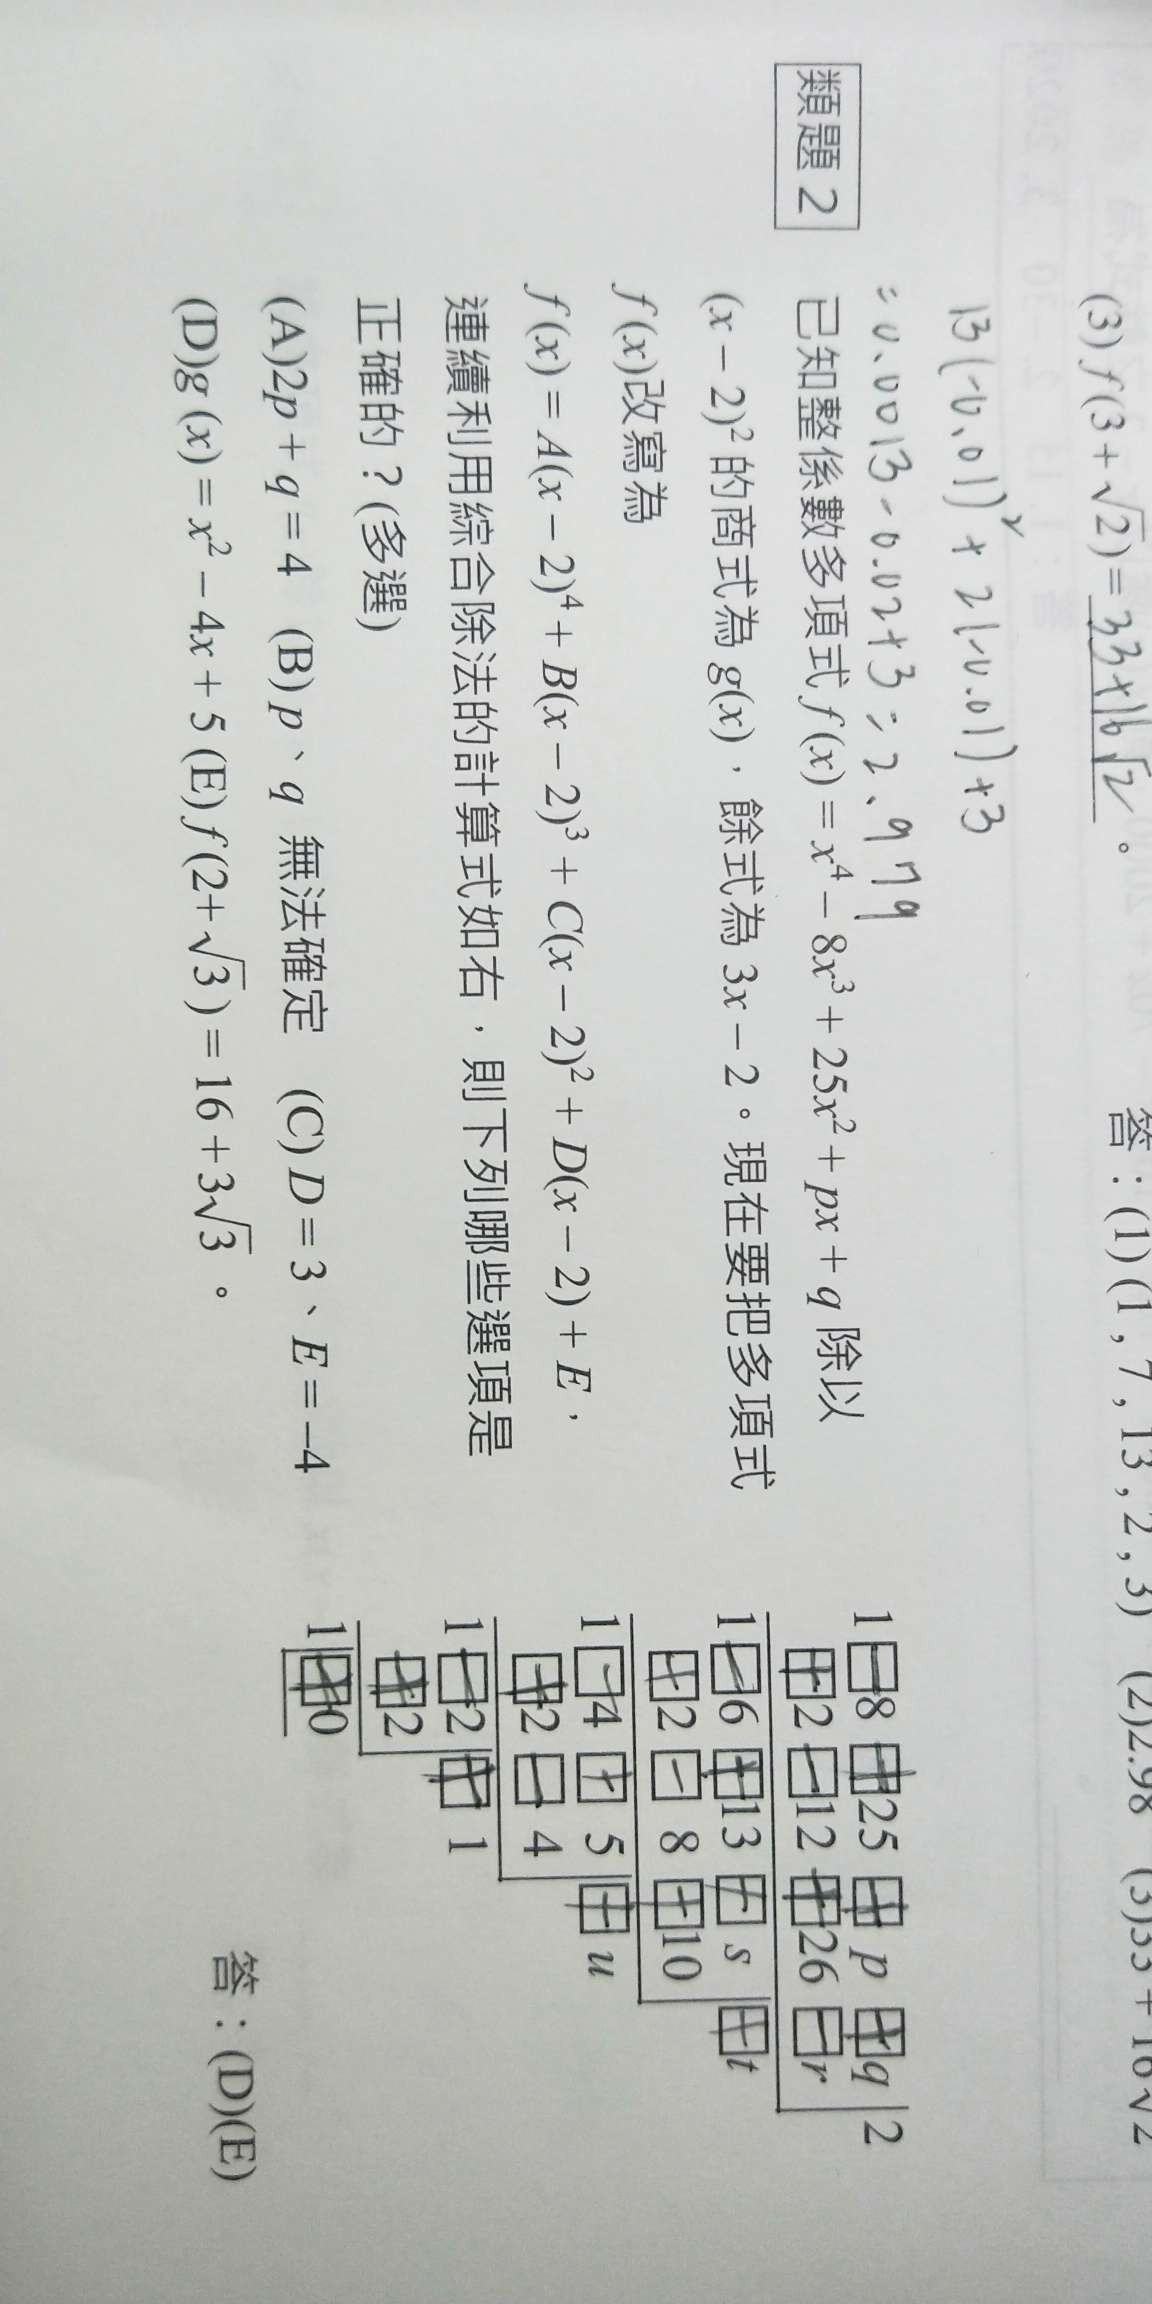 (3) f(3+√2)= 33+16√2 。
答：(1) (1 , 7 , 13 , 2 , 3) (2)2.98 (3)33+16√2
13(-0.01)² + 2(-0.01)+3
= 0.0013-0.02+3=2.979
類題 2
已知整係數多項式 f(x) = x⁴ − 8x³ + 25x² + px + q 除以
(x − 2)² 的商式為 g(x)，餘式為 3x − 2。現在要把多項式
f(x)改寫為
f(x) = A(x − 2)⁴ + B(x − 2)³ + C(x − 2)² + D(x − 2) + E，
連續利用綜合除法的計算式如右，則下列哪些選項是
正確的？(多選)
(A)2p + q = 4 (B) p、q 無法確定 (C) D = 3、E = −4
(D)g (x) = x² − 4x + 5 (E) f (2+√3) = 16 + 3√3 。
1 − 8 + 25 + p + q 2
+ 2 − 12 + 26 − r
1 − 6 + 13 − s + t
+ 2 − 8 + 10
1 − 4 + 5 + u
+ 2 − 4
1 − 2 + 1
+ 2
1 + 0
答：(D)(E)